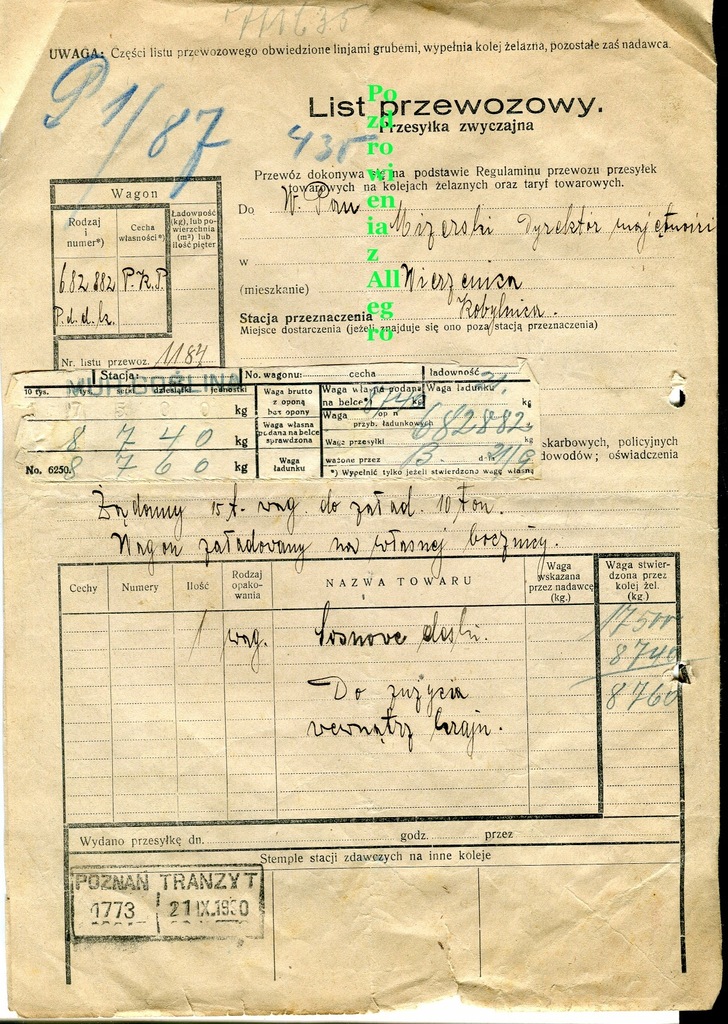 711635
UWAGA: Części listu przewozowego obwiedzione linjami grubemi, wypełnia kolej żelazna, pozostałe zaś nadawca.
P 1/87
List przewozowy.
Przesyłka zwyczajna
435
Przewóz dokonywa się na podstawie Regulaminu przewozu przesyłek
towarowych na kolejach żelaznych oraz taryf towarowych.
Pozdrowienia z Allegro
Wagon
Rodzaj i numer*)
Cecha własności*)
Ładowność (kg), lub powierzchnia (m²) lub ilość pięter
682 882 P.K.P.
P.d.d.k.
Nr. listu przewoz. 1187
Do W. Pan
Mizerski Dyrektor majętności
w
(mieszkanie) Wierzenica
Stacja przeznaczenia Kobylnica.
Miejsce dostarczenia (jeżeli znajduje się ono poza stacją przeznaczenia)
Stacja: No. wagonu: cecha ładowność
MUR. GOŚLINA
10 tys. tys. setki dziesiątki jednostki
17500 kg Waga brutto z oponą bez opony
8740 kg Waga własna podana na belce sprawdzona
No. 6250. 8760 kg Waga ładunku
Waga własna podana na belce*) 8740 kg
Waga ładunku
Waga przyb. ładunkowych kg
682882
Waga przesyłki kg
ważone przez dnia 21/9
*) Wypełnić tylko jeżeli stwierdzono wagę własną
skarbowych, policyjnych
dowodów; oświadczenia
Żądamy 15 t. wag. do załad. 10 ton.
Wagon załadowany na własnej bocznicy.
Cechy Numery Ilość Rodzaj opakowania NAZWA TOWARU Waga wskazana przez nadawcę (kg.) Waga stwierdzona przez kolej żel. (kg.)
1 wag. Sosnowe deski. 17500
8740
Do zużycia 8760
wewnątrz kraju.
Wydano przesyłkę dn. godz. przez
Stemple stacji zdawczych na inne koleje
POZNAŃ TRANZYT
1773 21 IX.1930